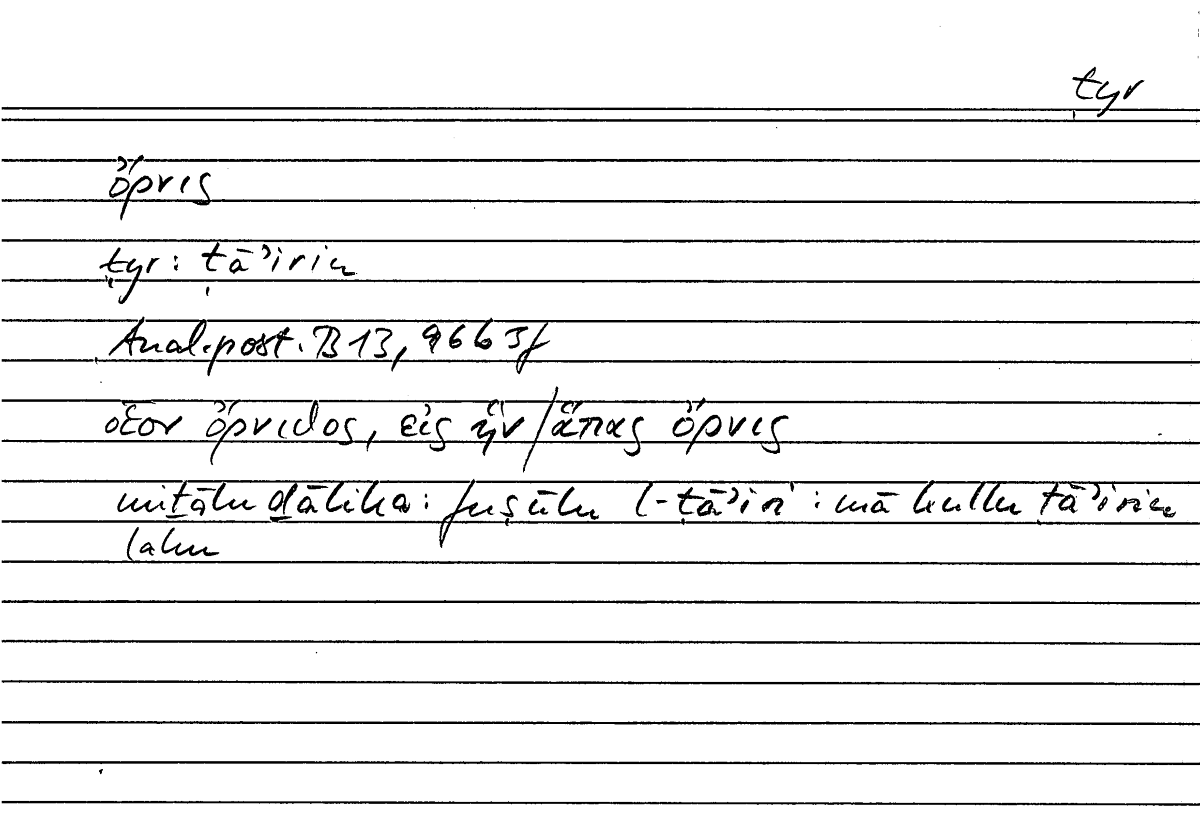 ṭyr
ὄρνις
ṭyr: ṭāʾirin
Anal. post. B 13, 96b 3f
οἷον ὄρνιθος, εἰς ἣν/ἅπας ὄρνις
miṯālu ḏālika: fuṣūlu l-ṭāʾiri: mā kullu ṭāʾirin
lahu